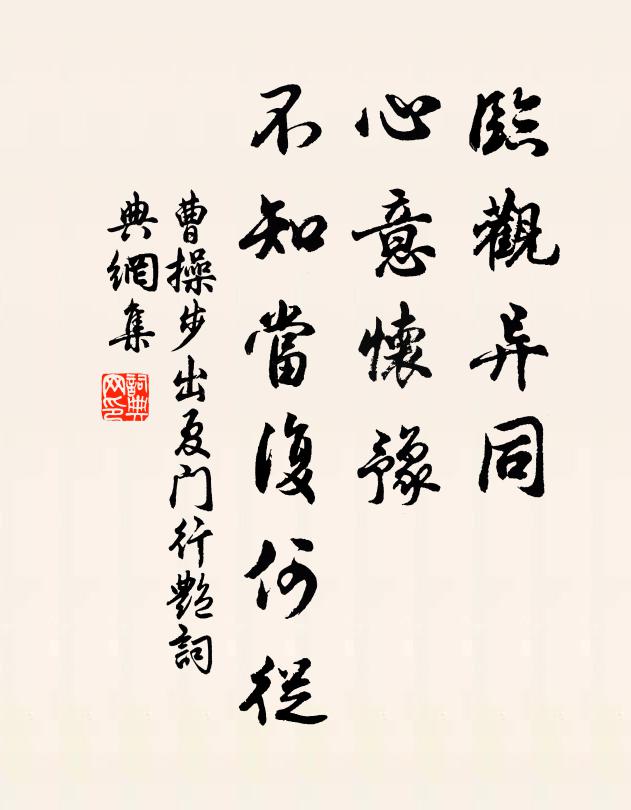 臨觀异同
心意懷豫
不知當復何從
曹操步出夏门行艷詞
典網集
詞典网印